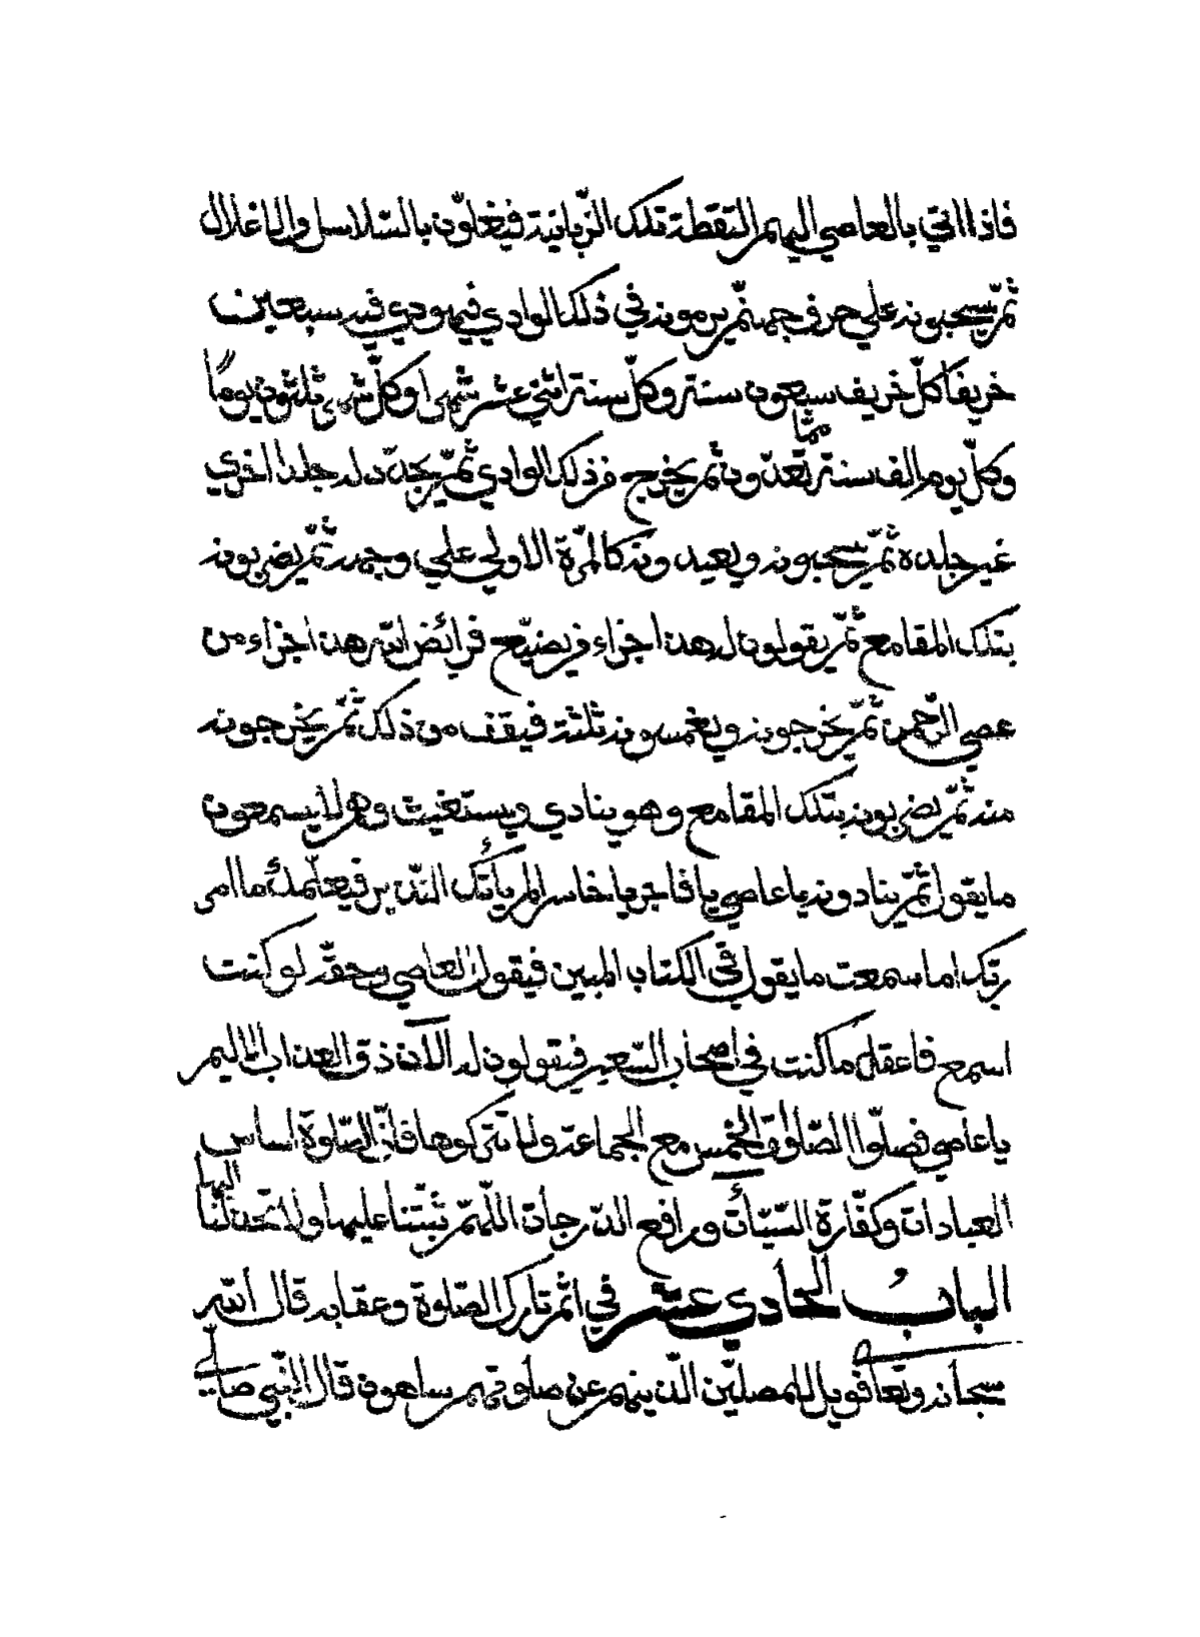 فاذا اتي بالعاصي اليهم التقطته تلك الزبانية فيغلّون بالسّلاسل والاغلال
ثمّ يسحبونه علي حرف جهنم ثمّ يرمونه في ذلك الوادي فيهودي فيه سبعين
خريفا كلّ خريف سبعون سنة وكلّ سنة اثني عشر شهرا وكلّ شهر ثلثون يومًا
وكلّ يوم الف سنة ممّا تعدّون ثم يخرج من ذلك الوادي ثمّ يجدّد له جلدا اخري
غير جلده ثمّ يسحبونه ويعيدونه كالمرّة الاولي علي وجهه ثمّ يضربونه
بتلك المقامع ثمّ يقولون له هذا جزاء من يضيّع فرائض الله هذا جزاء من
عصي الرّحمن ثمّ يخرجونه ويغمسونه ثلثة فيقف من ذلك ثمّ يخرجونه
منه ثمّ يضربونه بتلك المقامع وهو ينادي ويستغيث وهم لا يسمعون
ما يقول ثمّ ينادونه يا عاصي يا فاجر يا خاسر الم يأتك النّذير فيعلّمك ما امر
ربّك اما سمعت ما يقول في الكتاب المبين فيقول العاصي وحقّه لو كنت
اسمع فاعقل ما كنت في اصحاب السّعير فيقولون له الآن ذق العذاب الاليم
يا عاصي فصلّوا الصّلوات الخمس مع الجماعة ولا تتركوها فانّ الصّلوة اساس
العبادات وكفّارة السّيّأت ورافع الدّرجات اللّهمّ ثبّتنا عليها ولا تخذلنا اليها
الباب الحادي عشر في اثم تارك الصّلوة وعقابه قال الله
سبحانه وتعا فويل للمصلّين الّذين هم عن صلوتهم ساهون قال النّبيّ صلي